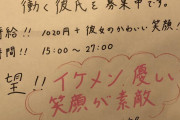 働く彼氏を募集中です。
時給!! 1020円+彼女のかわいい笑顔!
時間!! 15:00〜27:00
望!!
イケメン優しい
笑顔が素敵